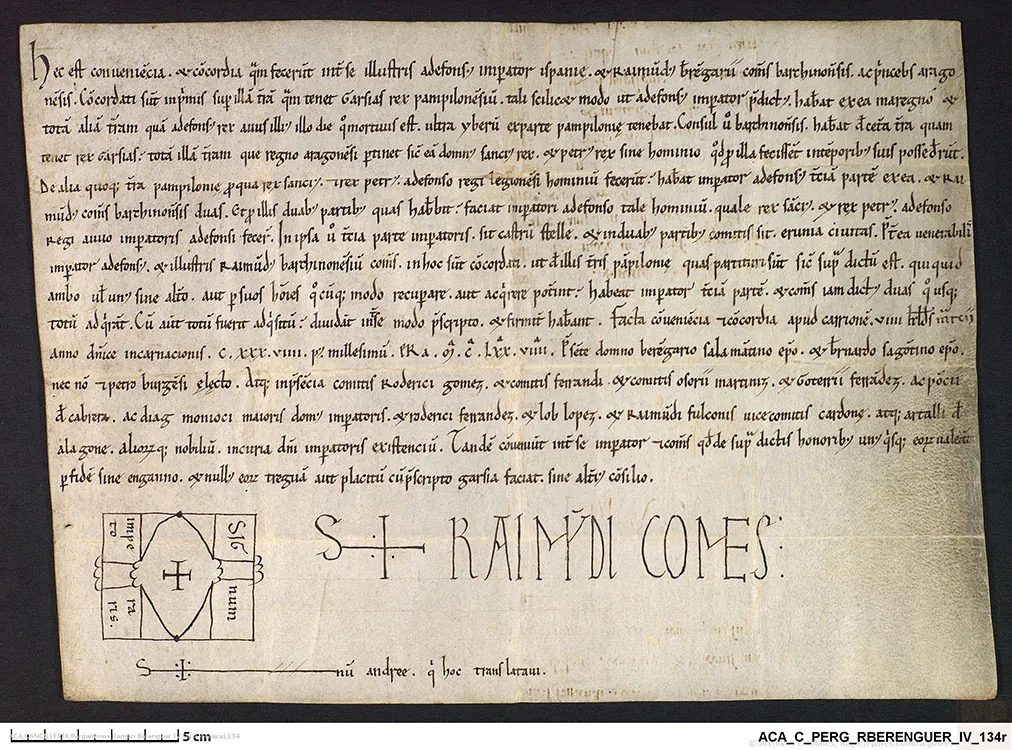 Hec est convenięcia . & cōcordia q̄m fecerūt int̄ se illustris adefonsꝰ imꝑator ispanie . & Raimūdꝰ b̄rēgarii com̄s barchinon̄sis . ac p̄ncebs arago
nēsis . Cōcordati sūt inp̄mis suꝑ illā t̄rā q̄m tenet Garsias rex pampilonēsiū . tali scilic& modo ut adefonsꝰ imꝑator p̄dictꝰ . hab̄at exea maregnō &
totā aliā t̄ram quā adefonsꝰ rex avus illiꝰ illo die q̊ mortuus est . ultra yberū exparte pampilonię tenebat . Consul ū barchinōsis . hab̄at d̄ cet̄a t̄ra quam
tenet rex garsias : totā illā t̄ram que regno aragonēsi ꝑtinet sic̄ eā domnꝰ sanciꝰ rex . & petrꝰ rex sine hominio q̊d ꝓ illa fecissēt intēporibꝰ suis possed̄rūt .
De alia quoq; t̄ra pampilonię ꝓ qua rex sanciꝰ . ⁊ rex petrꝰ . adefonso regi legionēsi hominiū fecerūt : hab̄at imꝑator adefonsꝰ t̄ciā partē exea . & Rai
mūdꝰ com̄s barchinōsis duas . Et ꝓ illis duabꝰ partibꝰ quas hab̄bit : faciat imꝑatori adefonso tale hominiū . quale rex sāciꝰ . & rex petrꝰ . adefonso
Regi avuo imꝑatoris adefonsi fecer̄ . In ipsa ū t̄cia parte imꝑatoris . sit castrū stelle . & induabꝰ partibꝰ comitis sit . erunia civitas . P̄t̄ea venerabilis
imꝑator adefonsꝰ . & illustris Raimūdꝰ barchinonēsiū com̄s . in hoc sūt cōcordati . ut d̄ illis t̄ris pāpilonię quas partituri sūt sic̄ sup̄ dictū est . quiquid
ambo ul̄ unꝰ sine alt̄o . aut ꝑ suos hōies q̊ cūq; modo recuꝑare . aut acq̄rere potīnt : habeat imꝑator t̄ciā partē . & com̄s iam dictꝰ duas q̊ usq;
totū adq̄rāt . Cū aūt totū fuerit adq̄sitū : dividāt int̄se modo p̄scripto . & firmit̄ habānt . Facta cōveniēcia ⁊ cōcordia apud carrionē . viiii kl̄d̄s marcii
anno dn̄ice incarnacionis . C . xxx . viiii . pꝰ millesimū . ERA . M̊ . C̊ . Lxx . viiii . P̄sēte domno berēgario salamātino ep̄o . & b̄rnardo sagōtino ep̄o .
nec nō ⁊ petro burgēsi electo . Atq; inp̄sēcia comitis Roderici gomez . & comitis ferrandi . & comitis osorii martiniz . & Goterrii ferrādez . ac pōcii
d̄ cabrera . ac diag monioci maioris domꝰ imꝑatoris . & roderici ferrandez . & lob lopez . & Raimūdi fulconis vicecomitis cardonę . atq; artalli d̄
alagone . aliorꝝq; nobiliū . incuria dn̄i imꝑatoris existenciū . Tandē cōveniūt int̄ se imꝑator ⁊ com̄s q̊d de sup̄ dictis honoribꝰ unꝰ q̄sq; eorꝝ valeāt
ꝑ fidē sine enganno . & nullꝰ eorꝝ treguā aut placitū cū p̄scripto garsia faciat . sine alt̄iꝰ cōsilio .
SIGnum imperatoris .
S+ RAIMŪDI COMES :
S+nū andree . q̄ hoc translatavi .
5 cm
ACA_C_PERG_RBERENGUER_IV_134r